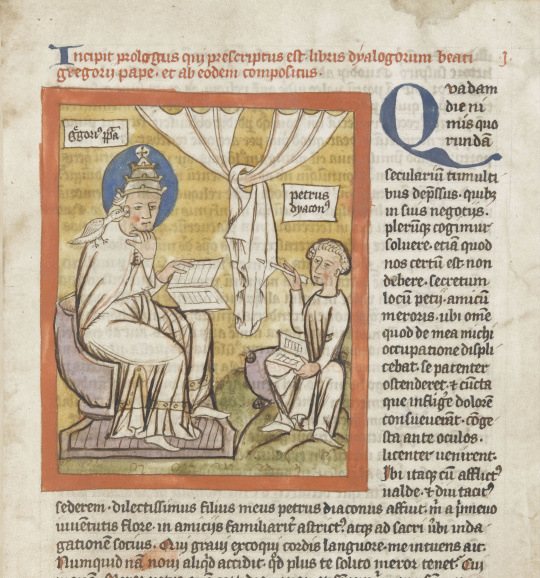 Incipit prologus qui prescriptus est libris dyalogorum beati
gregorii pape. et ab eodem compositus.
petrus
dyacon⁹
Quadam
die ni
mis quo
rundā
seculariū tumulti
bus dep̄ssus. quibꝫ
in suis negotiis.
plerūqꝫ cogimur
soluere. etiā quod
nos certū est non
debere. secretum
locū petii. amicū
meroris. ubi om̄e
quod de mea michi
occupatione displi
cebat. se patenter
ostenderet. ⁊ cūcta
que inflig̾e dolorē
consueuerāt. cōge
sta ante oculos.
licenter uenirent.
Ibi itaqꝫ cū afflict⁹
ualde. ⁊ diu tacit⁹
sederem. dilectissimus filius meus petrus diaconus affuit. m̄ a p̄meuo
iuuētutis flore. in amicitiis familiarit̾ astrict⁹. atqꝫ ad sacri u̾bi inda
gationem socius. Qui graui excoqui cordis languore me intuens ait.
Numquid nā noui aliqd accidit. qd plus te solito meror tenet. Cui